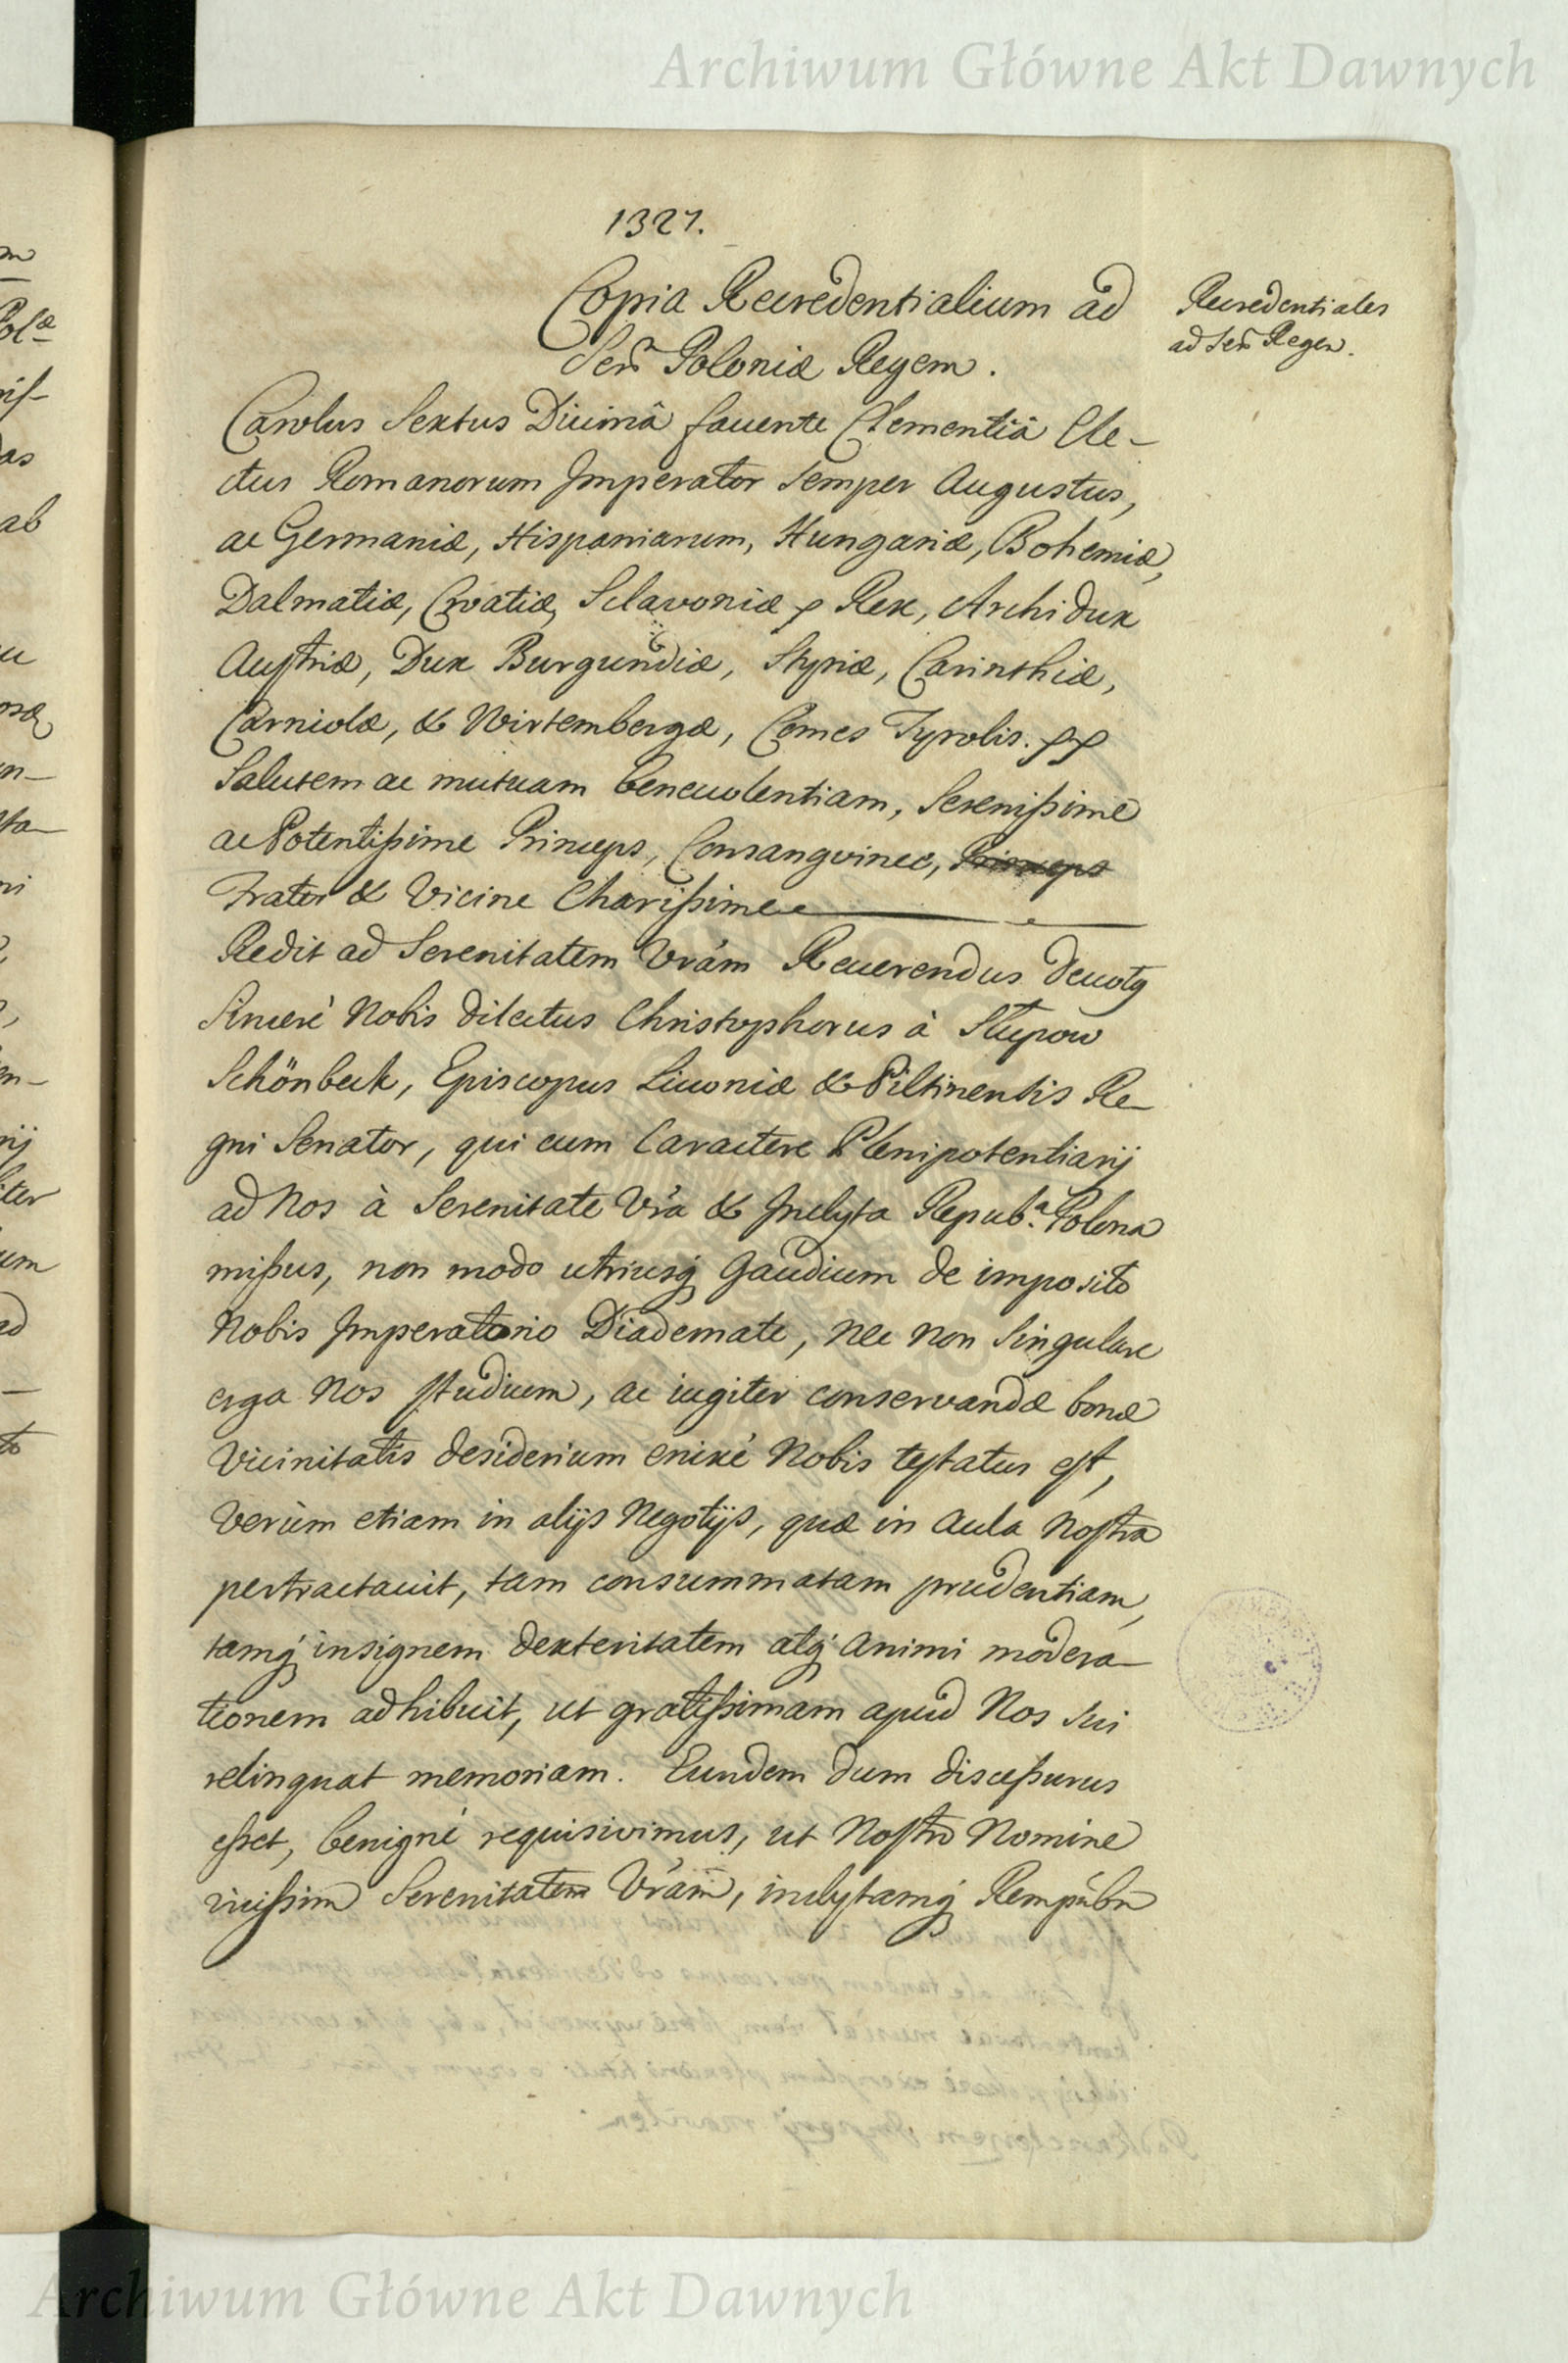 Archiwum Główne Akt Dawnych
1327.
Copia Recredentialium ad
Serm̃ Poloniæ Regem.
Recredentiales
ad Serm̃ Regem.
Carolus Sextus Diuinâ fauente Clementiâ Ele-
ctus Romanorum Imperator semper Augustus,
ac Germaniæ, Hispaniarum, Hungariæ, Bohemiæ,
Dalmatiæ, Croatiæ, Sclavoniæ Rex, Archidux
Austriæ, Dux Burgundiæ, Styriæ, Carinthiæ,
Carniolæ, & Wirtembergæ, Comes Tyrolis.
Salutem ac mutuam beneuolentiam, Serenissime
ac Potentissime Princeps, Consanguinee, Princeps
Frater & Vicine Charissime
Redit ad Serenitatem Vrãm Reuerendus deuotq
Sincerè Nobis dilectus Christophorus à Słupow
Schönbeck, Episcopus Liuoniæ & Piltinensis Re-
gni Senator, qui cum Caractere Plenipotentiarij
ad Nos à Serenitate Vrã & Inclyta Repub.ᵃ Polona
missus, non modo utriusq gaudium de imposito
Nobis Imperatorio Diademate, nec non singulare
erga Nos studium, ac iugiter conservandæ bonæ
Vicinitatis desiderium enixè Nobis testatus est,
Verùm etiam in alijs Negotijs, quæ in Aula Nostra
pertractauit, tam consummatam prudentiam,
tamq insignem dexteritatem atq Animi modera-
tionem adhibuit, ut gratissimam apud Nos sui
relinquat memoriam. Eundem dum discessurus
esset, benignè requisivimus, ut Nostro Nomine
vicissim Serenitatem Vrãm, inclytamq Rempubñ
Archiwum Główne Akt Dawnych